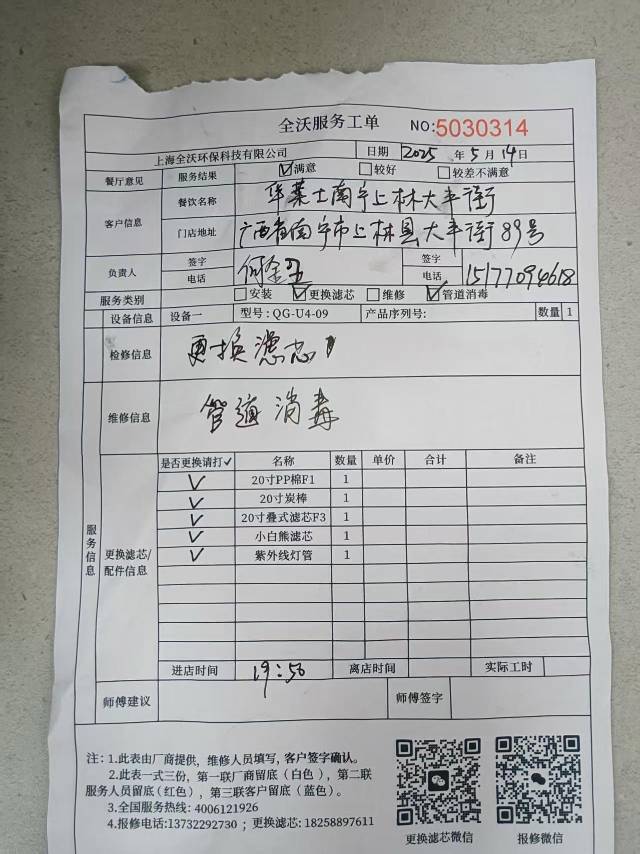 全沃服务工单 NO:5030314
上海全沃环保科技有限公司 日期 2025 年 5 月 14 日
餐厅意见 服务结果 ☑满意 □较好 □较差不满意
客户信息 餐饮名称 华莱士南宁上林大丰街
门店地址 广西省南宁市上林县大丰街89号
负责人 签字 签字
电话 电话 15177094618
服务类别 □安装 ☑更换滤芯 □维修 ☑管道消毒
设备信息 设备一 型号: QG-U4-09 产品序列号: 数量 1
检修信息 更换滤芯
维修信息 管道消毒
服务信息 更换滤芯/配件信息
是否更换请打✓ 名称 数量 单价 合计 备注
✓ 20寸PP棉F1 1
✓ 20寸炭棒 1
✓ 20寸叠式滤芯F3 1
✓ 小白熊滤芯 1
✓ 紫外线灯管 1
进店时间 19:50 离店时间 实际工时
师傅建议 师傅签字
注: 1.此表由厂商提供, 维修人员填写, 客户签字确认。
2.此表一式三份, 第一联厂商留底(白色), 第二联
服务人员留底(红色), 第三联客户留底(蓝色)。
3.全国服务热线: 4006121926
4.报修电话:13732292730 ; 更换滤芯: 18258897611
更换滤芯微信 报修微信